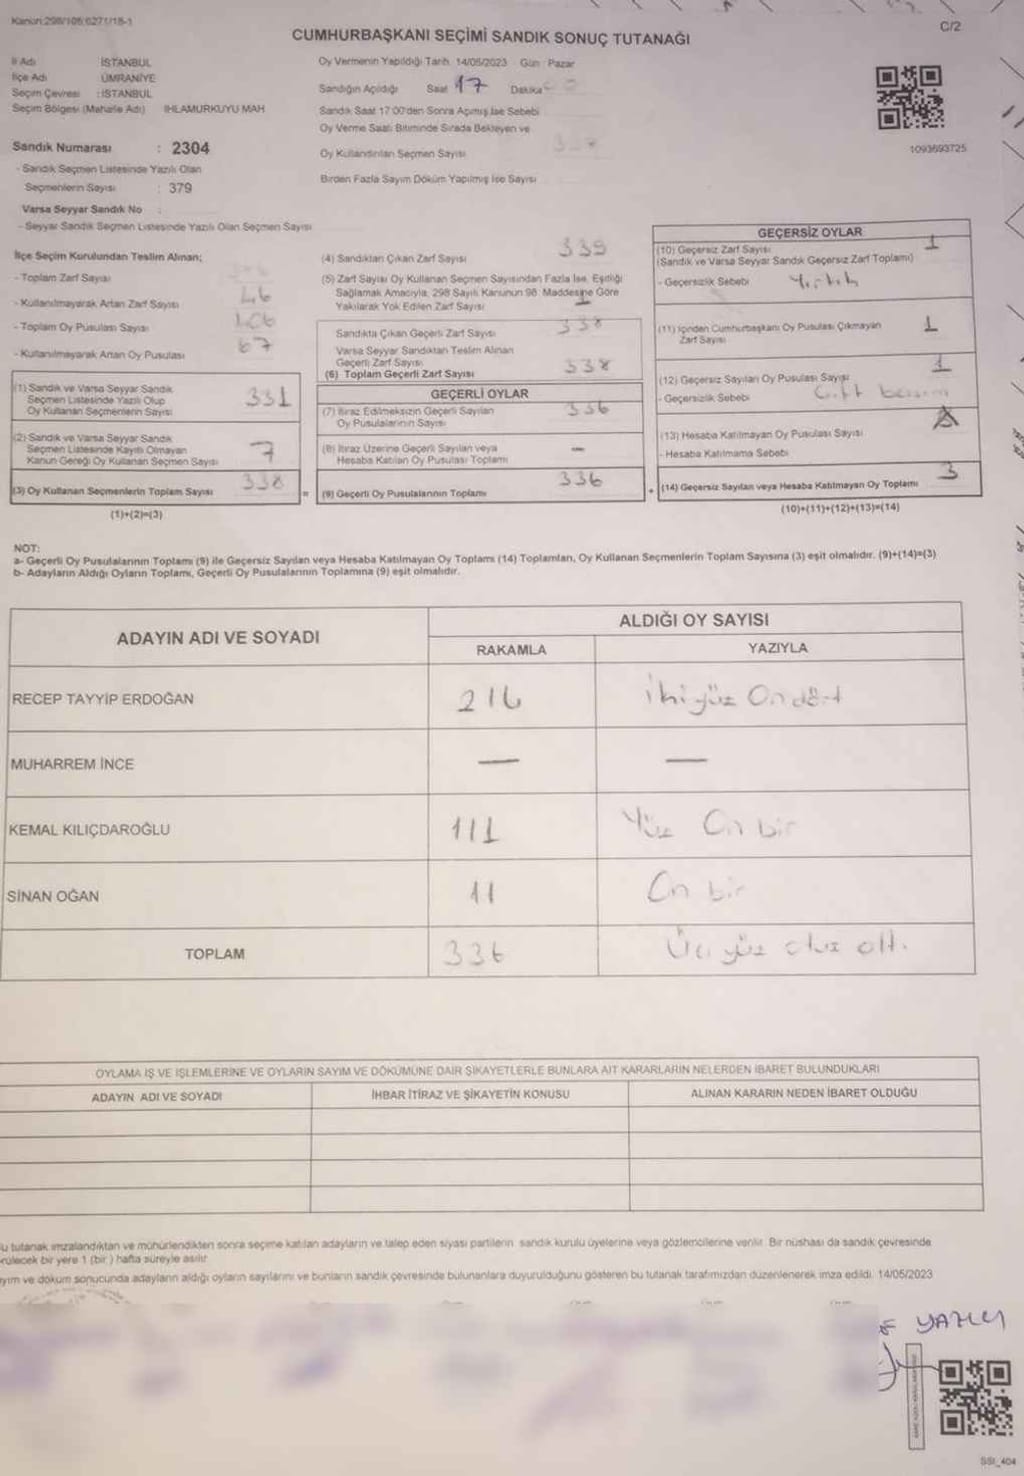 Kanun:298/106;6271/18-1
C/2
CUMHURBAŞKANI SEÇİMİ SANDIK SONUÇ TUTANAĞI
İl Adı : İSTANBUL
İlçe Adı : ÜMRANİYE
Seçim Çevresi : İSTANBUL
Seçim Bölgesi (Mahalle Adı) : IHLAMURKUYU MAH
Sandık Numarası : 2304
- Sandık Seçmen Listesinde Yazılı Olan
Seçmenlerin Sayısı : 379
Varsa Seyyar Sandık No :
- Seyyar Sandık Seçmen Listesinde Yazılı Olan Seçmen Sayısı
Oy Vermenin Yapıldığı Tarih: 14/05/2023 Gün : Pazar
Sandığın Açıldığı Saat 17 Dakika
Sandık Saat 17:00'den Sonra Açılmış İse Sebebi
Oy Verme Saati Bitiminde Sırada Bekleyen ve
Oy Kullandırılan Seçmen Sayısı
Birden Fazla Sayım Döküm Yapılmış İse Sayısı
1093693725
İlçe Seçim Kurulundan Teslim Alınan;
- Toplam Zarf Sayısı
- Kullanılmayarak Artan Zarf Sayısı
- Toplam Oy Pusulası Sayısı
- Kullanılmayarak Artan Oy Pusulası 67
(1) Sandık ve Varsa Seyyar Sandık
Seçmen Listesinde Yazılı Olup
Oy Kullanan Seçmenlerin Sayısı 331
(2) Sandık ve Varsa Seyyar Sandık
Seçmen Listesinde Kayıtlı Olmayan
Kanun Gereği Oy Kullanan Seçmen Sayısı 7
(3) Oy Kullanan Seçmenlerin Toplam Sayısı 338
(1)+(2)=(3)
(4) Sandıktan Çıkan Zarf Sayısı 339
(5) Zarf Sayısı Oy Kullanan Seçmen Sayısından Fazla İse, Eşitliği
Sağlamak Amacıyla, 298 Sayılı Kanunun 98. Maddesine Göre
Yakılarak Yok Edilen Zarf Sayısı 1
Sandıkta Çıkan Geçerli Zarf Sayısı 338
Varsa Seyyar Sandıktan Teslim Alınan
Geçerli Zarf Sayısı
(6) Toplam Geçerli Zarf Sayısı 338
GEÇERLİ OYLAR
(7) İtiraz Edilmeksizin Geçerli Sayılan
Oy Pusulalarının Sayısı 336
(8) İtiraz Üzerine Geçerli Sayılan veya
Hesaba Katılan Oy Pusulası Toplamı —
= (9) Geçerli Oy Pusulalarının Toplamı 336
GEÇERSİZ OYLAR
(10) Geçersiz Zarf Sayısı 1
(Sandık ve Varsa Seyyar Sandık Geçersiz Zarf Toplamı)
- Geçersizlik Sebebi Yırtık
(11) İçinden Cumhurbaşkanı Oy Pusulası Çıkmayan
Zarf Sayısı 1
(12) Geçersiz Sayılan Oy Pusulası Sayısı 1
- Geçersizlik Sebebi Çift basım
(13) Hesaba Katılmayan Oy Pusulası Sayısı
- Hesaba Katılmama Sebebi
+ (14) Geçersiz Sayılan veya Hesaba Katılmayan Oy Toplamı 3
(10)+(11)+(12)+(13)=(14)
NOT:
a- Geçerli Oy Pusulalarının Toplamı (9) ile Geçersiz Sayılan veya Hesaba Katılmayan Oy Toplamı (14) Toplamları, Oy Kullanan Seçmenlerin Toplam Sayısına (3) eşit olmalıdır. (9)+(14)=(3)
b- Adayların Aldığı Oyların Toplamı, Geçerli Oy Pusulalarının Toplamına (9) eşit olmalıdır.
ADAYIN ADI VE SOYADI
ALDIĞI OY SAYISI
RAKAMLA YAZIYLA
RECEP TAYYİP ERDOĞAN 214 İkiyüz Ondört
MUHARREM İNCE — —
KEMAL KILIÇDAROĞLU 111 Yüz On bir
SİNAN OĞAN 11 On bir
TOPLAM 336 Üç yüz otuz altı
OYLAMA İŞ VE İŞLEMLERİNE VE OYLARIN SAYIM VE DÖKÜMÜNE DAİR ŞİKAYETLERLE BUNLARA AİT KARARLARIN NELERDEN İBARET BULUNDUKLARI
ADAYIN ADI VE SOYADI İHBAR İTİRAZ VE ŞİKAYETİN KONUSU ALINAN KARARIN NEDEN İBARET OLDUĞU
u tutanak imzalandıktan ve mühürlendikten sonra seçime katılan adayların ve talep eden siyasi partilerin sandık kurulu üyelerine veya gözlemcilerine verilir. Bir nüshası da sandık çevresinde
rülecek bir yere 1 (bir ) hafta süreyle asılır.
ayım ve döküm sonucunda adayların aldığı oyların sayılarını ve bunların sandık çevresinde bulunanlara duyurulduğunu gösteren bu tutanak tarafımızdan düzenlenerek imza edildi. 14/05/2023
YAZILI
SSI_404